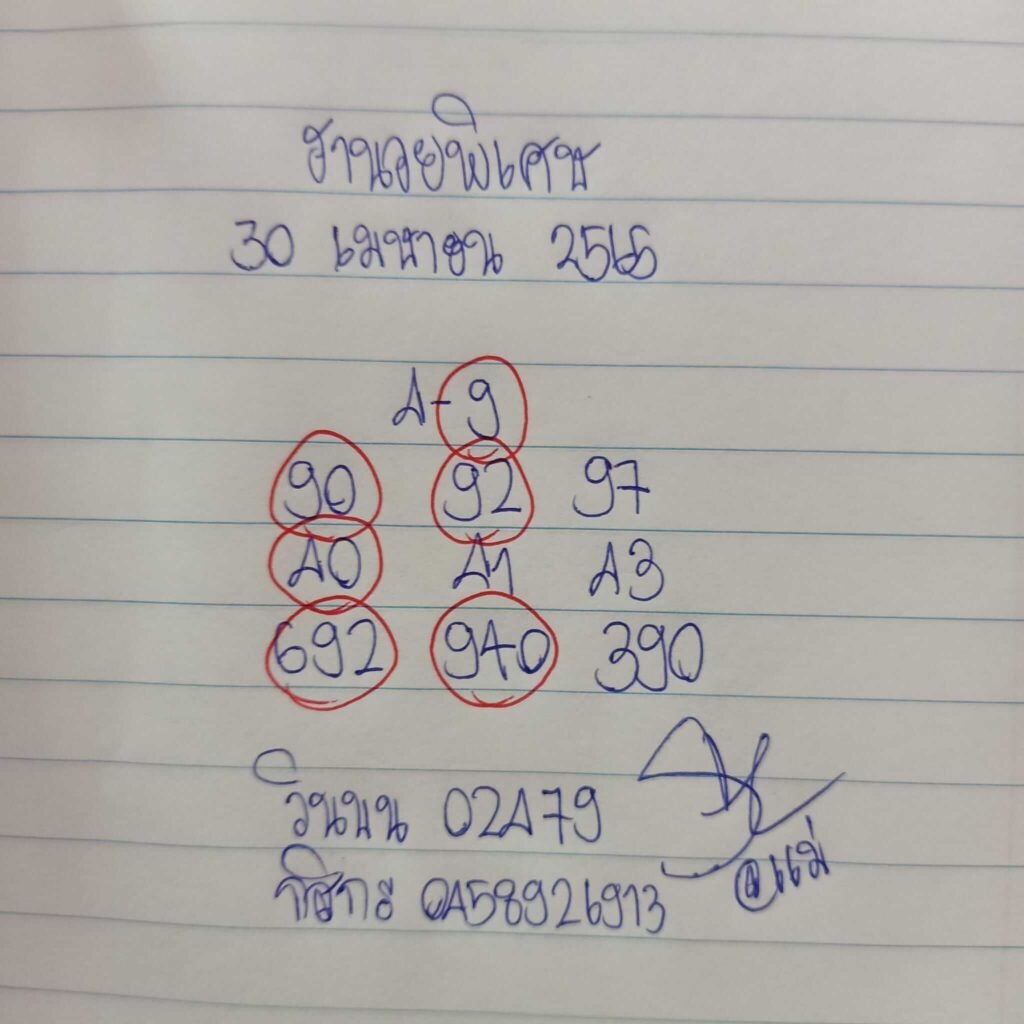 ฮานอยพิเศษ
30 เมษายน 2566
4-9
90 92 97
40 41 43
692 940 390
วินบน 02479
0458926913
@แม่